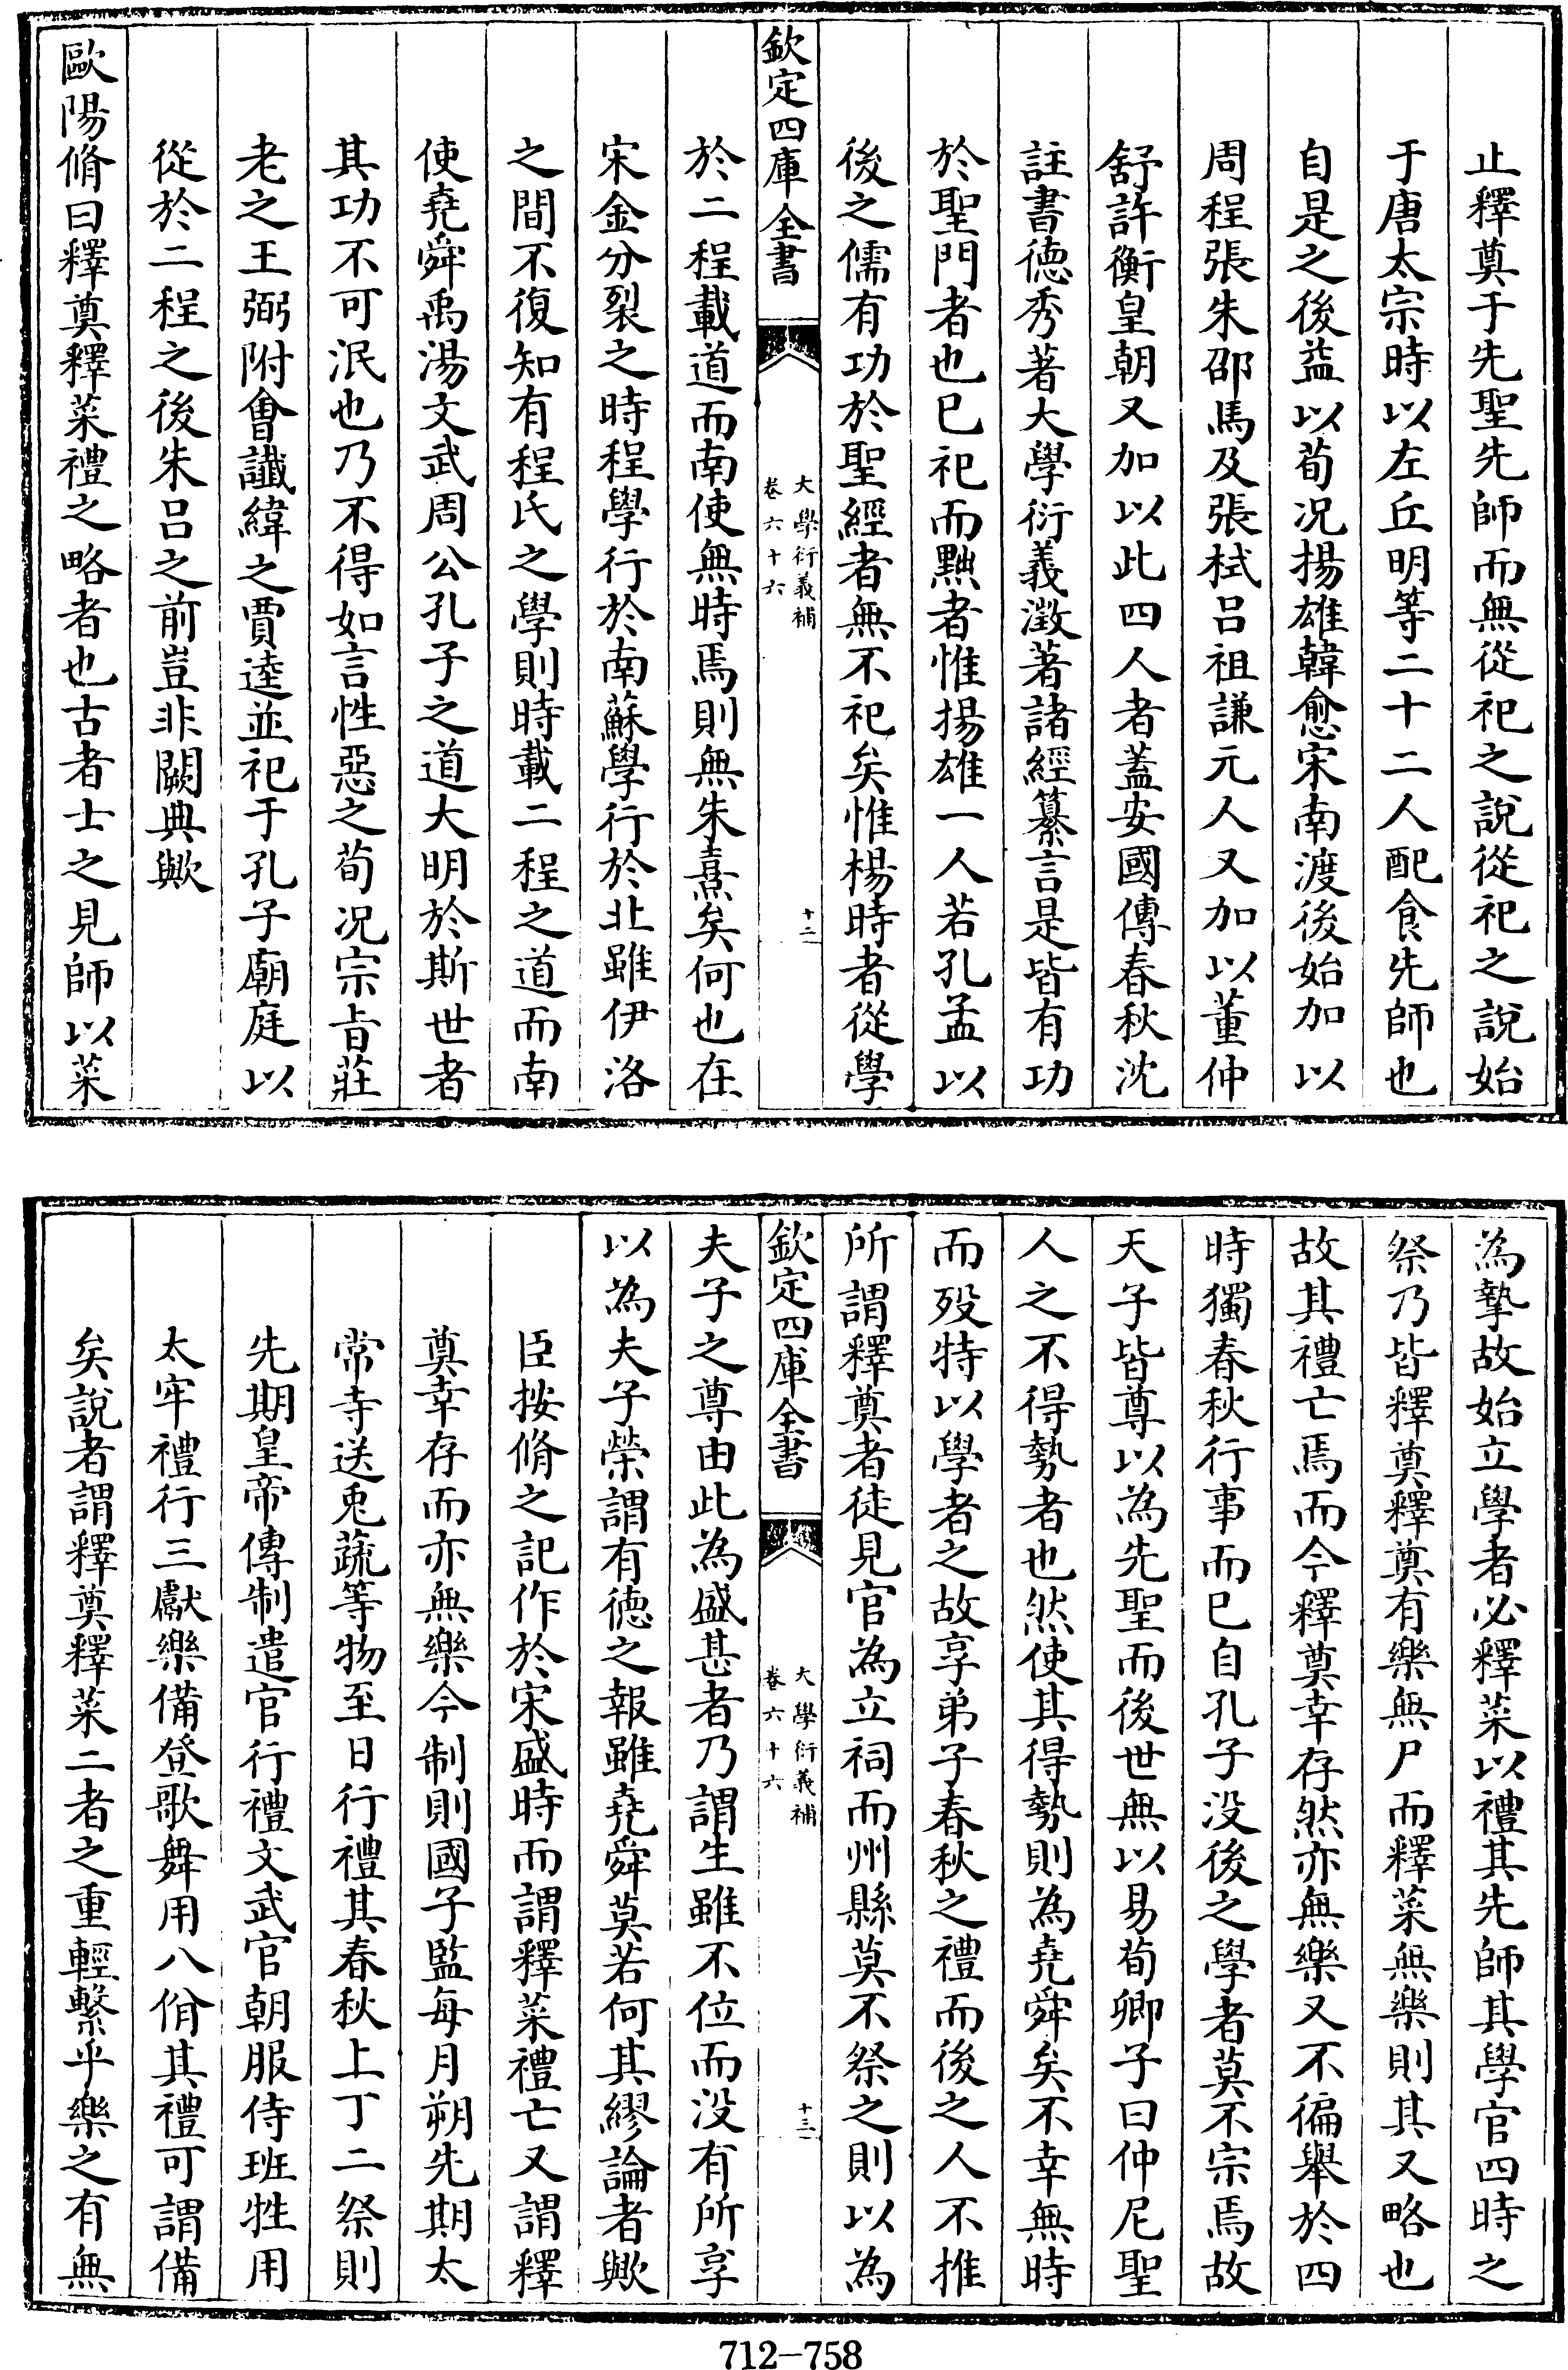 止釋奠于先聖先師而無從祀之說從祀之說始
于唐太宗時以左丘明等二十二人配食先師也
自是之後益以荀况揚雄韓愈宋南渡後始加以
周程張朱邵馬及張栻吕祖謙元人又加以董仲
舒許衡皇朝又加以此四人者蓋安國傳春秋沈
註書德秀著大學衍義澂著諸經纂言是皆有功
於聖門者也已祀而黜者惟揚雄一人若孔孟以
後之儒有功於聖經者無不祀矣惟楊時者從學
欽定四庫全書
大學衍義補
卷六十六
十二
於二程載道而南使無時焉則無朱熹矣何也在
宋金分裂之時程學行於南蘇學行於北雖伊洛
之間不復知有程氏之學則時載二程之道而南
使堯舜禹湯文武周公孔子之道大明於斯世者
其功不可泯也乃不得如言性惡之荀况宗旨莊
老之王弼附會讖緯之賈逵並祀于孔子廟庭以
從於二程之後朱吕之前豈非闕典歟
歐陽脩曰釋奠釋菜禮之略者也古者士之見師以菜
為摯故始立學者必釋菜以禮其先師其學官四時之
祭乃皆釋奠釋奠有樂無尸而釋菜無樂則其又略也
故其禮亡焉而今釋奠幸存然亦無樂又不徧舉於四
時獨春秋行事而已自孔子没後之學者莫不宗焉故
天子皆尊以為先聖而後世無以易荀卿子曰仲尼聖
人之不得勢者也然使其得勢則為堯舜矣不幸無時
而殁特以學者之故享弟子春秋之禮而後之人不推
所謂釋奠者徒見官為立祠而州縣莫不祭之則以為
欽定四庫全書
大學衍義補
卷六十六
十三
夫子之尊由此為盛甚者乃謂生雖不位而没有所享
以為夫子榮謂有德之報雖堯舜莫若何其繆論者歟
臣按脩之記作於宋盛時而謂釋菜禮亡又謂釋
奠幸存而亦無樂今制則國子監每月朔先期太
常寺送兎蔬等物至日行禮其春秋上丁二祭則
先期皇帝傳制遣官行禮文武官朝服侍班牲用
太牢禮行三獻樂備登歌舞用八佾其禮可謂備
矣說者謂釋奠釋菜二者之重輕繫乎樂之有無
712-758